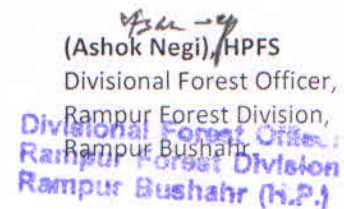 (Ashok Negi), HPFS
Divisional Forest Officer,
Rampur Forest Division,
Rampur Bushahr
Divisional Forest Office
Rampur Forest Division
Rampur Bushahr (H.P.)